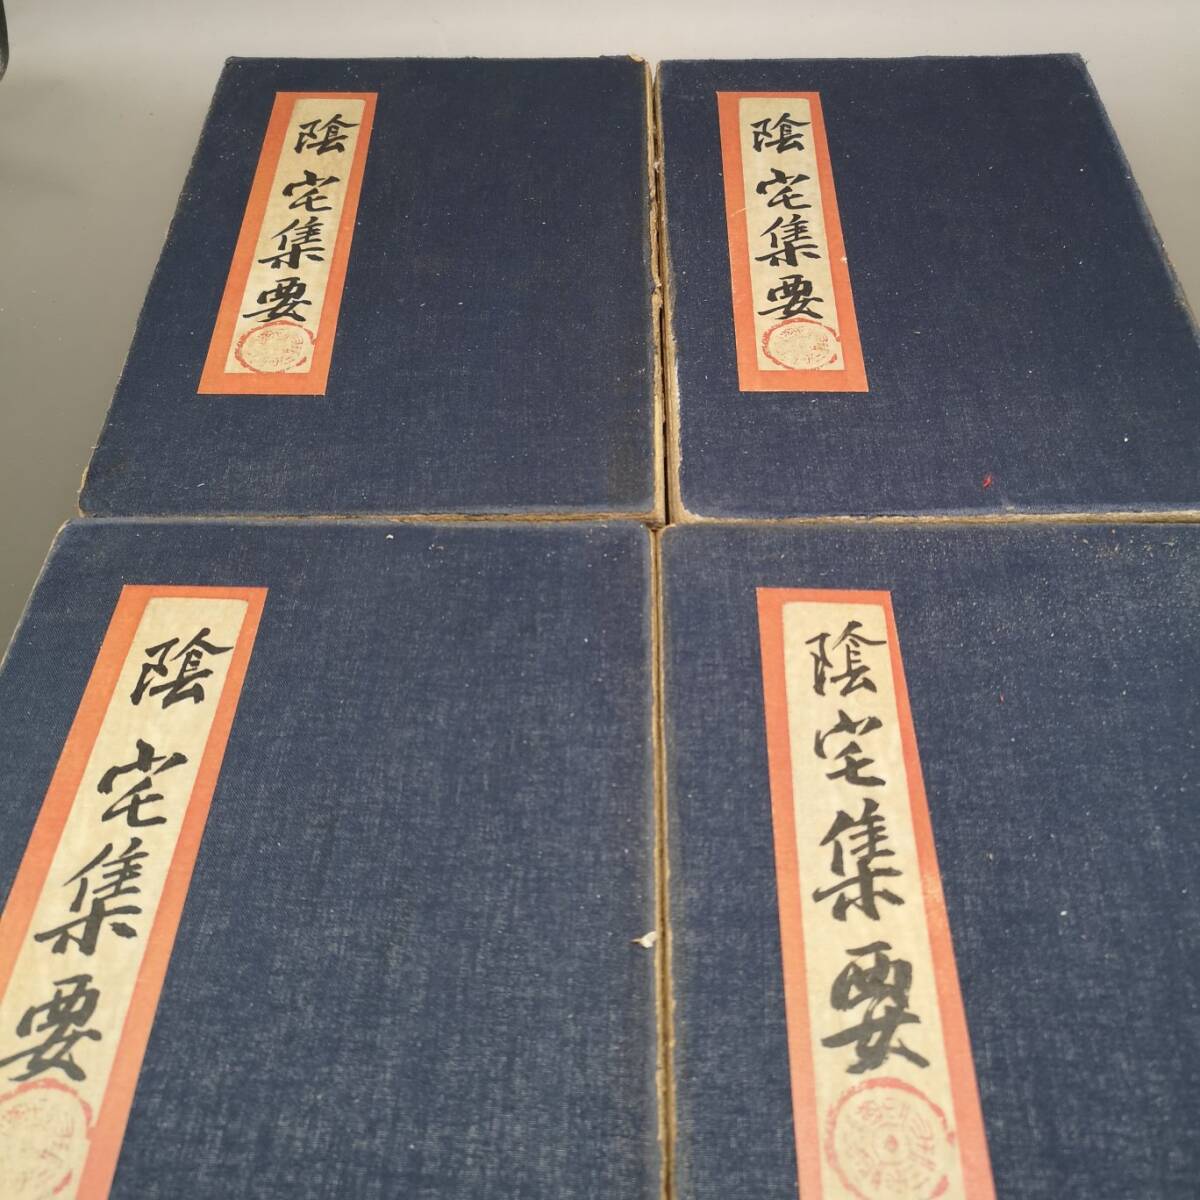 陰宅集要
陰宅集要
陰宅集要
陰宅集要